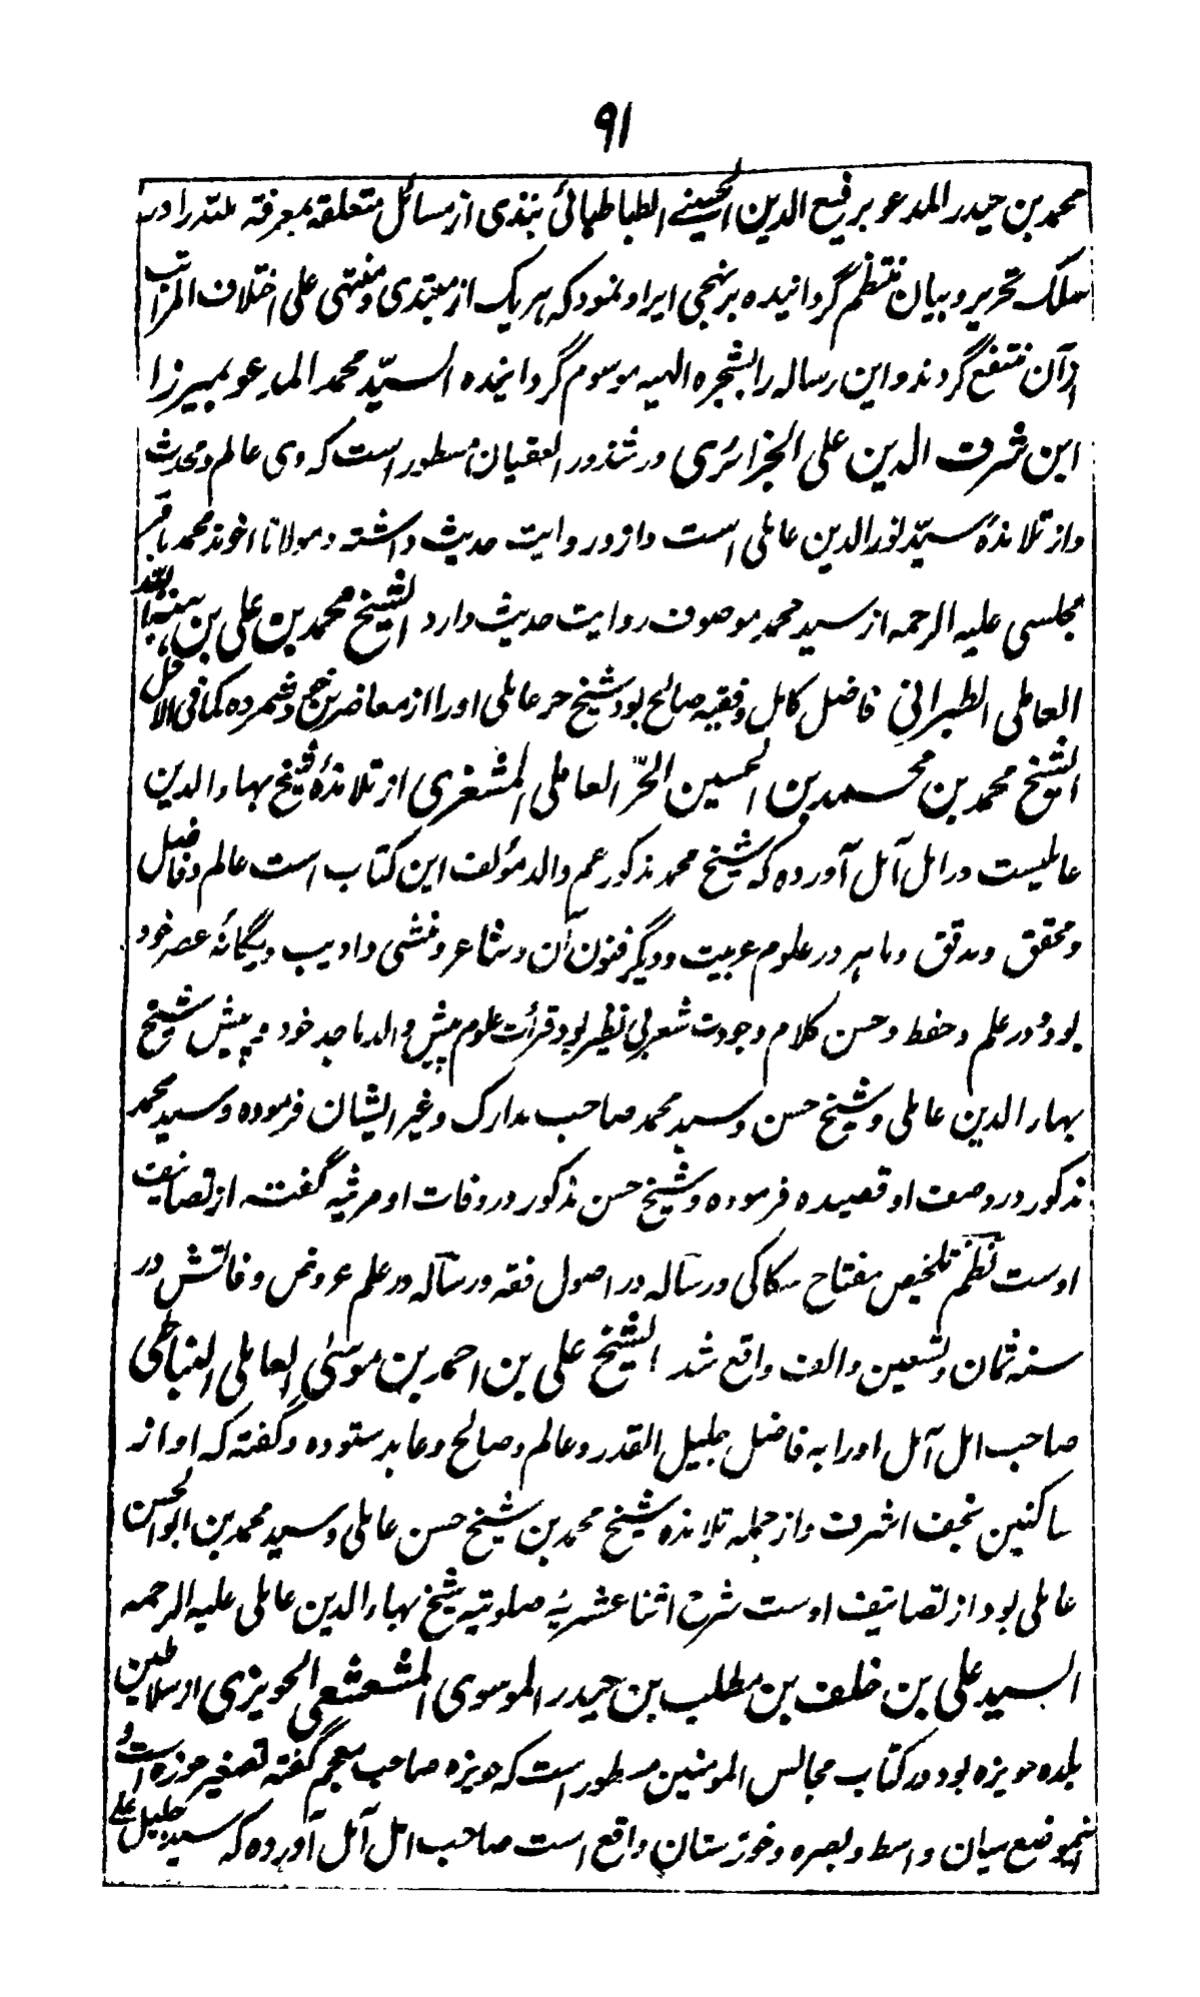 ۹۱
محمد بن حیدر المدعو برفیع الدین الحسینے الطباطبائی نبذی از مسائل متعلقه بمعرفة الله را در
سلک تحریر و بیان منتظم گردانیده بر نهجی ایراد نمود که هر یک از مبتدی و منتهی علی اختلاف المراتب
ازآن منتفع گردند و این رساله را بشجره الهیه موسوم گردانیده السیّد محمد المدعو بمیرزا
ابن شرف الدین علی الجزائری در شذور العقیان مسطور است که وی عالم و محدث
و از تلامذهٔ سیّد نور الدین عاملی است و از و روایت حدیث داشته و مولانا اخوند محمد باقر
مجلسی علیه الرحمه از سید محمد موصوف روایت حدیث دارد الشیخ محمد بن علی بن هبة الله
العاملی الطبرانی فاضل کامل و فقیه صالح بود شیخ حر عاملی او را از معاصرین خود شمرده کما فی الامل
الشیخ محمد بن محمد بن الحسین الحرّ العاملی المشغری از تلامذهٔ شیخ بهاء الدین
عاملیست در امل آمل آورده که شیخ محمد مذکور عم والد مؤلف این کتاب است عالم و فاضل
و محقق و مدقق و ماهر در علوم عربیت و دیگر فنون آن و شاعر و منشی و ادیب و یگانهٔ عصر خود
بود و در علم و حفظ و حسن کلام و جودت شعر بی نظیر بود قرأت علوم پیش والد ماجد خود و پیش شیخ
بهاء الدین عاملی و شیخ حسن و سید محمد صاحب مدارک و غیر ایشان فرموده و سید محمد
مذکور در وصف او قصیده فرموده و شیخ حسن مذکور در وفات او مرثیه گفته از تصانیف
اوست نظم تلخیص مفتاح سکاکی و رساله در اصول فقه و رساله در علم عروض وفاتش در
سنه ثمان و تسعین والف واقع شد الشیخ علی بن احمد بن موسیٰ العاملی النباطی
صاحب امل آمل او را به فاضل جلیل القدر و عالم و صالح و عابد ستوده و گفته که او از
ساکنین نجف اشرف و از جمله تلامذه شیخ محمد بن شیخ حسن عاملی و سید محمد بن ابو الحسن
عاملی بود از تصانیف اوست شرح اثنا عشریهٔ صلوتیه شیخ بهاء الدین عاملی علیه الرحمه
السید علی بن خلف بن مطلب بن حیدر الموسوی المشعشعی الحویزی از سلاطین
بلده حویزه بود در کتاب مجالس المومنین مسطور است که حویزه صاحب معجم گفته تصغیر حوزه است و
اینموضع میان واسط و بصره و خوزستان واقع است صاحب امل آمل آورده که سید جلیل علی